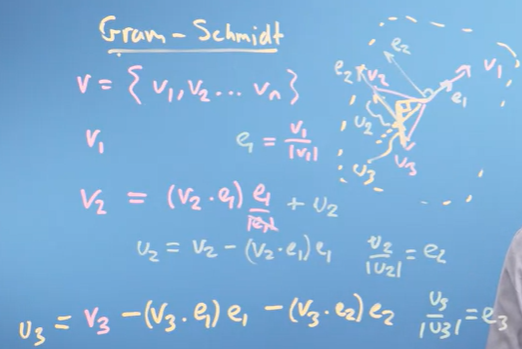 Gram-Schmidt
v = { v₁, v₂ ... vₙ }
v₁ e₁ = v₁/|v₁|
v₂ = (v₂·e₁) e₁/|e₁| + u₂
u₂ = v₂ - (v₂·e₁)e₁ u₂/|u₂| = e₂
u₃ = v₃ - (v₃·e₁)e₁ - (v₃·e₂)e₂ u₃/|u₃| = e₃
e₂
e₂ v₂ v₁
e₁
u₂
v₃
u₃